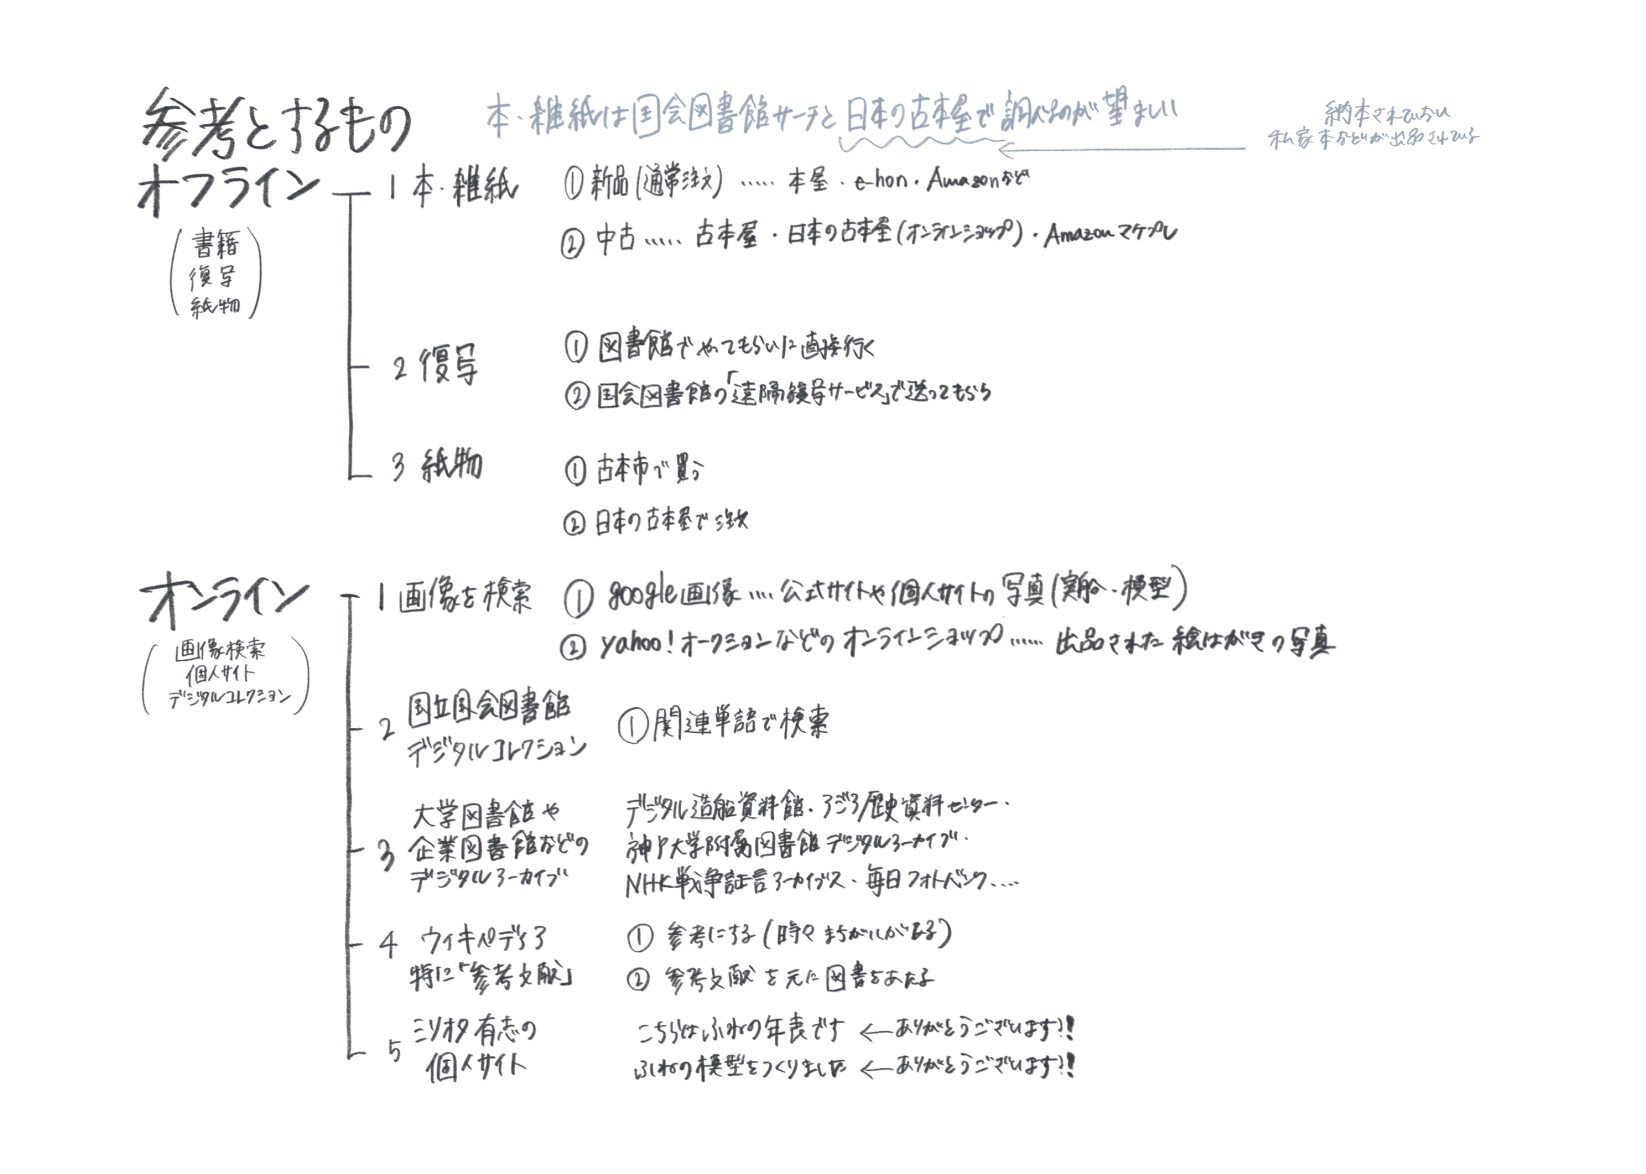 参考とするもの
本・雑紙は国会図書館サーチと日本の古本屋で調べるのが望ましい
納本されていない
私家本などが出品されている
オフライン
(書籍
復写
紙物)
1 本・雑紙
① 新品(通常注文) ‥‥‥ 本屋・e-hon・Amazonなど
② 中古 ‥‥‥ 古本屋・日本の古本屋(オンラインショップ)・Amazonマケプレ
2 復写
① 図書館でやってもらいに直接行く
② 国会図書館の「遠隔複写サービス」で送ってもらう
3 紙物
① 古本市で買う
② 日本の古本屋で注文
オンライン
(画像検索
個人サイト
デジタルコレクション)
1 画像を検索
① google画像‥‥公式サイトや個人サイトの写真(実船・模型)
② yahoo!オークションなどのオンラインショップ‥‥‥出品された絵はがきの写真
2 国立国会図書館
デジタルコレクション
① 関連単語で検索
3 大学図書館や
企業図書館などの
デジタルアーカイブ
デジタル造船資料館・アジア歴史資料センター・
神戸大学附属図書館デジタルアーカイブ・
NHK戦争証言アーカイブス・毎日フォトバンク‥‥
4 ウィキペディア
特に「参考文献」
① 参考にする(時々まちがいがある)
② 参考文献を元に図書をあたる
5 ミリオタ有志の
個人サイト
こちらはふねの年表です ←ありがとうございます!!
ふねの模型をつくりました ←ありがとうございます!!